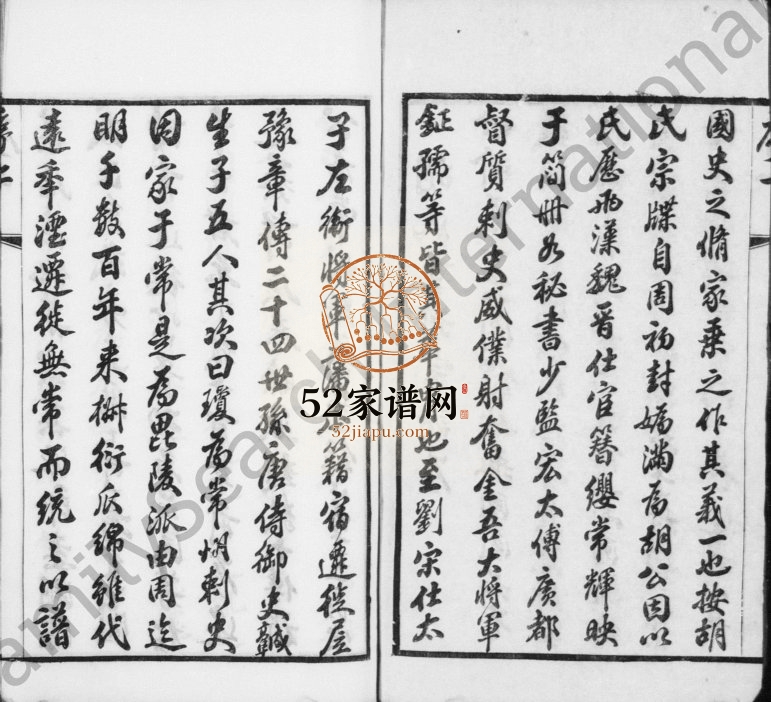 國史之脩家乗之作其義一也按胡
氏宗牒自周初封媯滿為胡公因以
氏歷
漢魏晉仕宦簪纓常輝映
于簡册如秘書少監宏太傅廣都
督質刺史威僕射奮金吾大將軍
鉦孺等皆其
也至劉宋仕太
子左衛將軍藩
籍宿遷徙居
豫章傳二十四世孫唐侍御史
生子五人其次曰瓊為常州刺史
因家于常是為毘陵派由周迄
明千數百年来椒衍瓜綿雖代
遠年湮遷徙無常而統之以譜
52家谱网
52jiapu.com
FamilySearch International